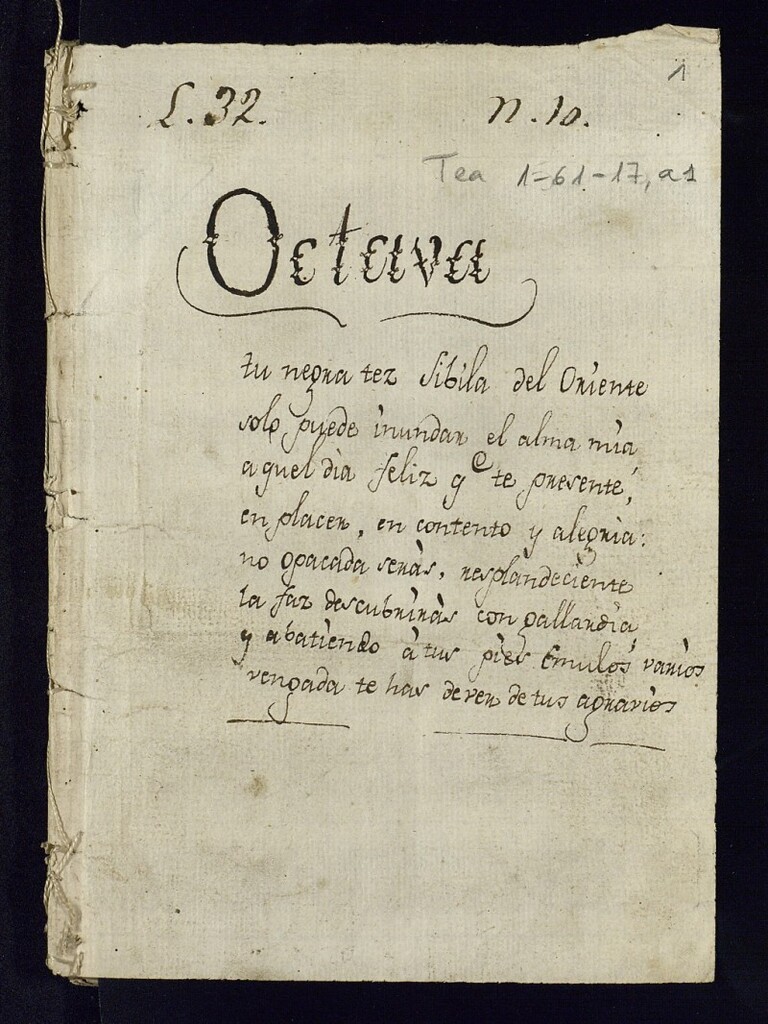 1
L. 32. N. 10.
Tea 1-61-17, a1
Octava
tu negra tez Sibila del Oriente
solo puede inundar el alma mia
aquel dia feliz qe te presente,
en placer, en contento y alegria:
no opacada seràs, resplandeciente
la faz descubriràs con gallardia,
y abatiendo à tus pies Emulos varios
vengada te has de ver de tus agravios